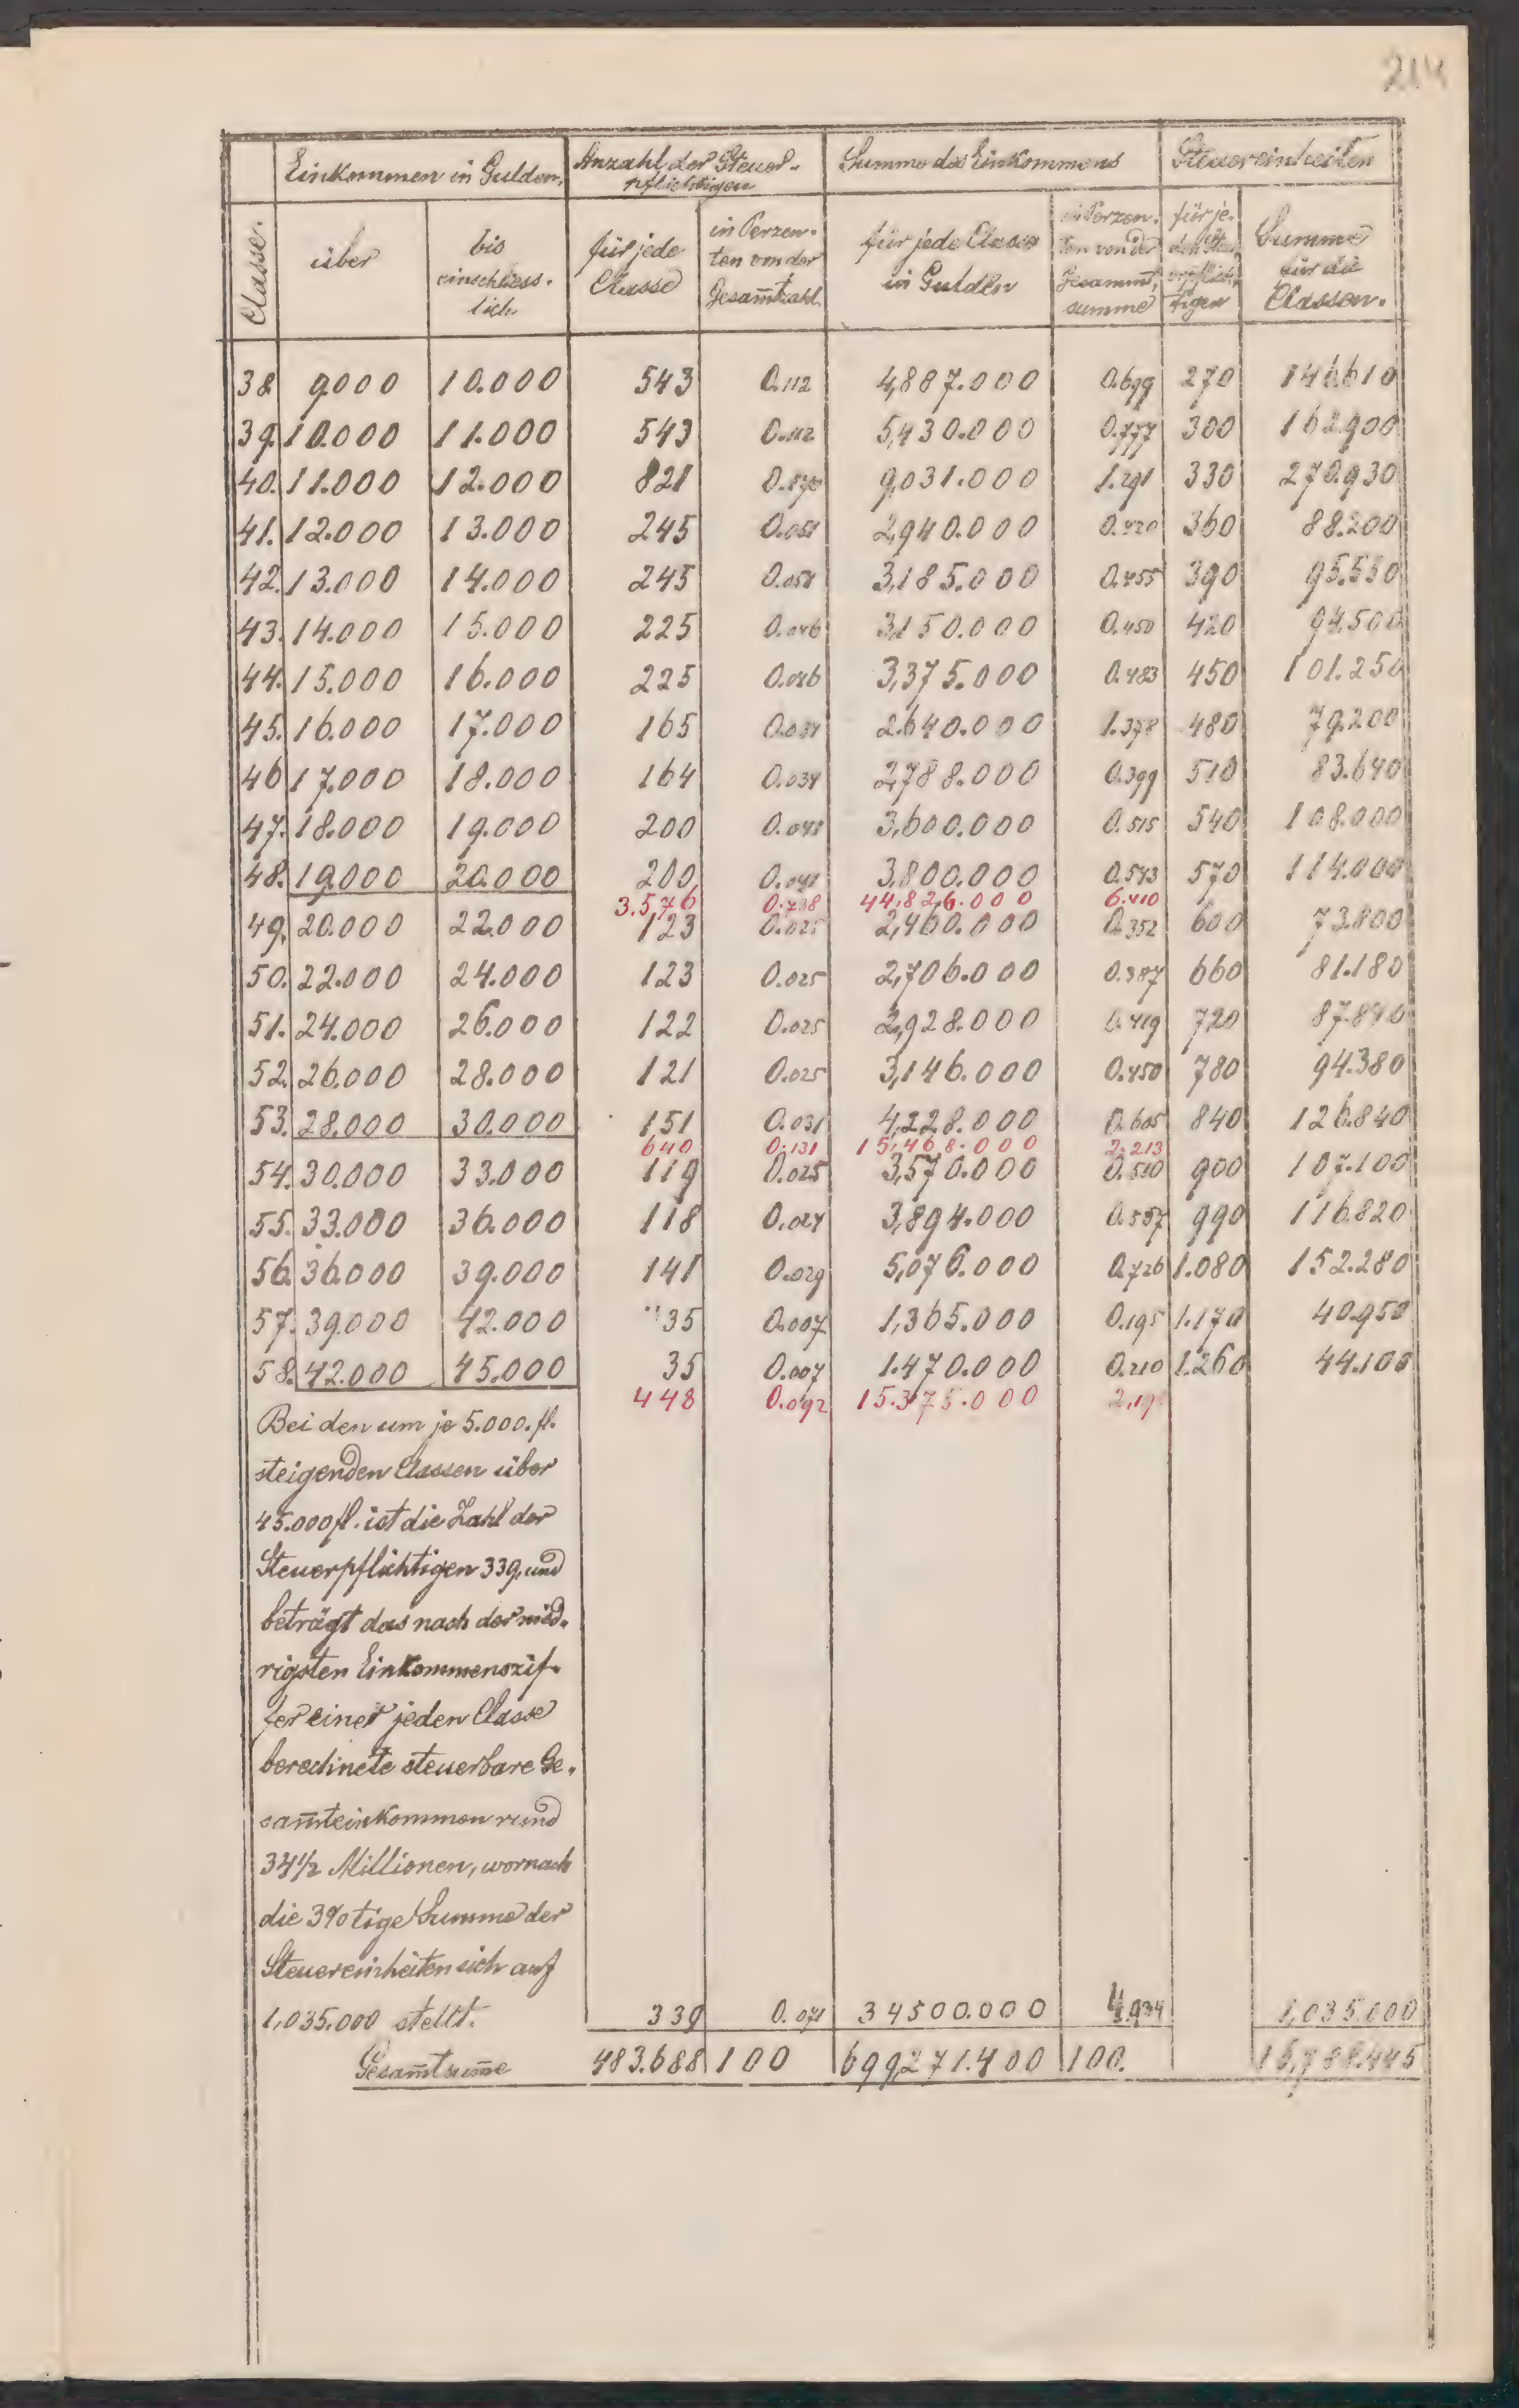 214
Einkommen in Gulden. Anzahl der Steuer- Summe des Einkommens Steuereinheiten
pflichtigen
Classe. über bis einschliess- lich. für jede Classe in Perzen- ten von der Gesam̅tzahl. für jede Classe in Gulden in Perzen- ten von der Gesammt- summe für je- den Steu- erpflich- tigen Summe für die Classen.
38 9000 10.000 543 0.112 4,887.000 0.699 270 146.610
39. 10.000 11.000 543 0.112 5,430.000 0.777 300 162.900
40. 11.000 12.000 821 0.170 9,031.000 1.291 330 270.930
41. 12.000 13.000 245 0.051 2,940.000 0.420 360 88.200
42. 13.000 14.000 245 0.051 3,185.000 0.455 390 95.550
43. 14.000 15.000 225 0.046 3,150.000 0.450 420 94.500
44. 15.000 16.000 225 0.046 3,375.000 0.483 450 101.250
45. 16.000 17.000 165 0.034 2.640.000 1.378 480 79.200
46 17.000 18.000 164 0.034 2,788.000 0.399 510 83.640
47. 18.000 19.000 200 0.041 3,600.000 0.515 540 108.000
48. 19000 20.000 200 0.041 3,800.000 0.543 570 114.000
3.576 0.738 44,826.000 6.410
49. 20.000 22.000 123 0.025 2,460.000 0.352 600 73.800
50. 22.000 24.000 123 0.025 2,706.000 0.387 660 81.180
51. 24.000 26.000 122 0.025 2,928.000 0.419 720 87.840
52. 26.000 28.000 121 0.025 3,146.000 0.450 780 94.380
53. 28.000 30.000 151 0.031 4,228.000 0.605 840 126.840
640 0.131 15,468.000 2.213
54. 30.000 33.000 119 0.025 3,570.000 0.510 900 107.100
55. 33.000 36.000 118 0.024 3,894.000 0.557 990 116.820
56. 36.000 39.000 141 0.029 5,076.000 0.726 1.080 152.280
57. 39.000 42.000 35 0.007 1,365.000 0.195 1.170 40.950
58. 42.000 45.000 35 0.007 1.470.000 0.210 1.260 44.100
448 0.092 15.375.000
Bei den um je 5.000.fl.
steigenden Classen über
45.000 fl. ist die Zahl der
Steuerpflichtigen 339, und
beträgt das nach der nied-
rigsten Einkommenszif-
fer einer jeden Classe
berechnete steuerbare Ge-
sam̅teinkommen rund
34 1/2 Millionen, wornach
die 3%tige Summe der
Steuereinheiten sich auf
1,035.000 stellt. 339 0.071 34500.000 4.934 1,035.000
Gesam̅tsum̅e 483.688 100 699,271.400 100.